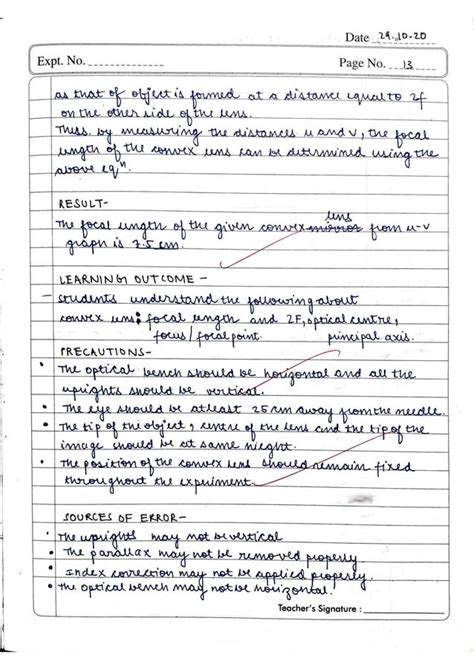 Date 29.10-20
Expt. No.
Page No. 13
as that of object is formed at a distance equal to 2f
on the other side of the lens.
Thus. by measuring the distances u and v, the focal
length of the convex lens can be determined using the
above eqⁿ.
RESULT-
The focal length of the given convex mirror lens from u-v
graph is 7.5 cm.
LEARNING OUTCOME -
- students understand the following about
convex lens: focal length and 2F, optical centre,
focus/focal point. principal axis.
PRECAUTIONS-
The optical bench should be horizontal and all the
uprights should be vertical.
• The eye should be atleast 25cm away from the needle.
• The tip of the object, centre of the lens and the tip of the
image should be at same height.
• The position of the convex lens should remain fixed
throughout the experiment.
SOURCES OF ERROR-
• The uprights may not be vertical
• The parallax may not be removed properly
• Index correction may not be applied properly.
• The optical bench may not be horizontal.
Teacher's Signature :